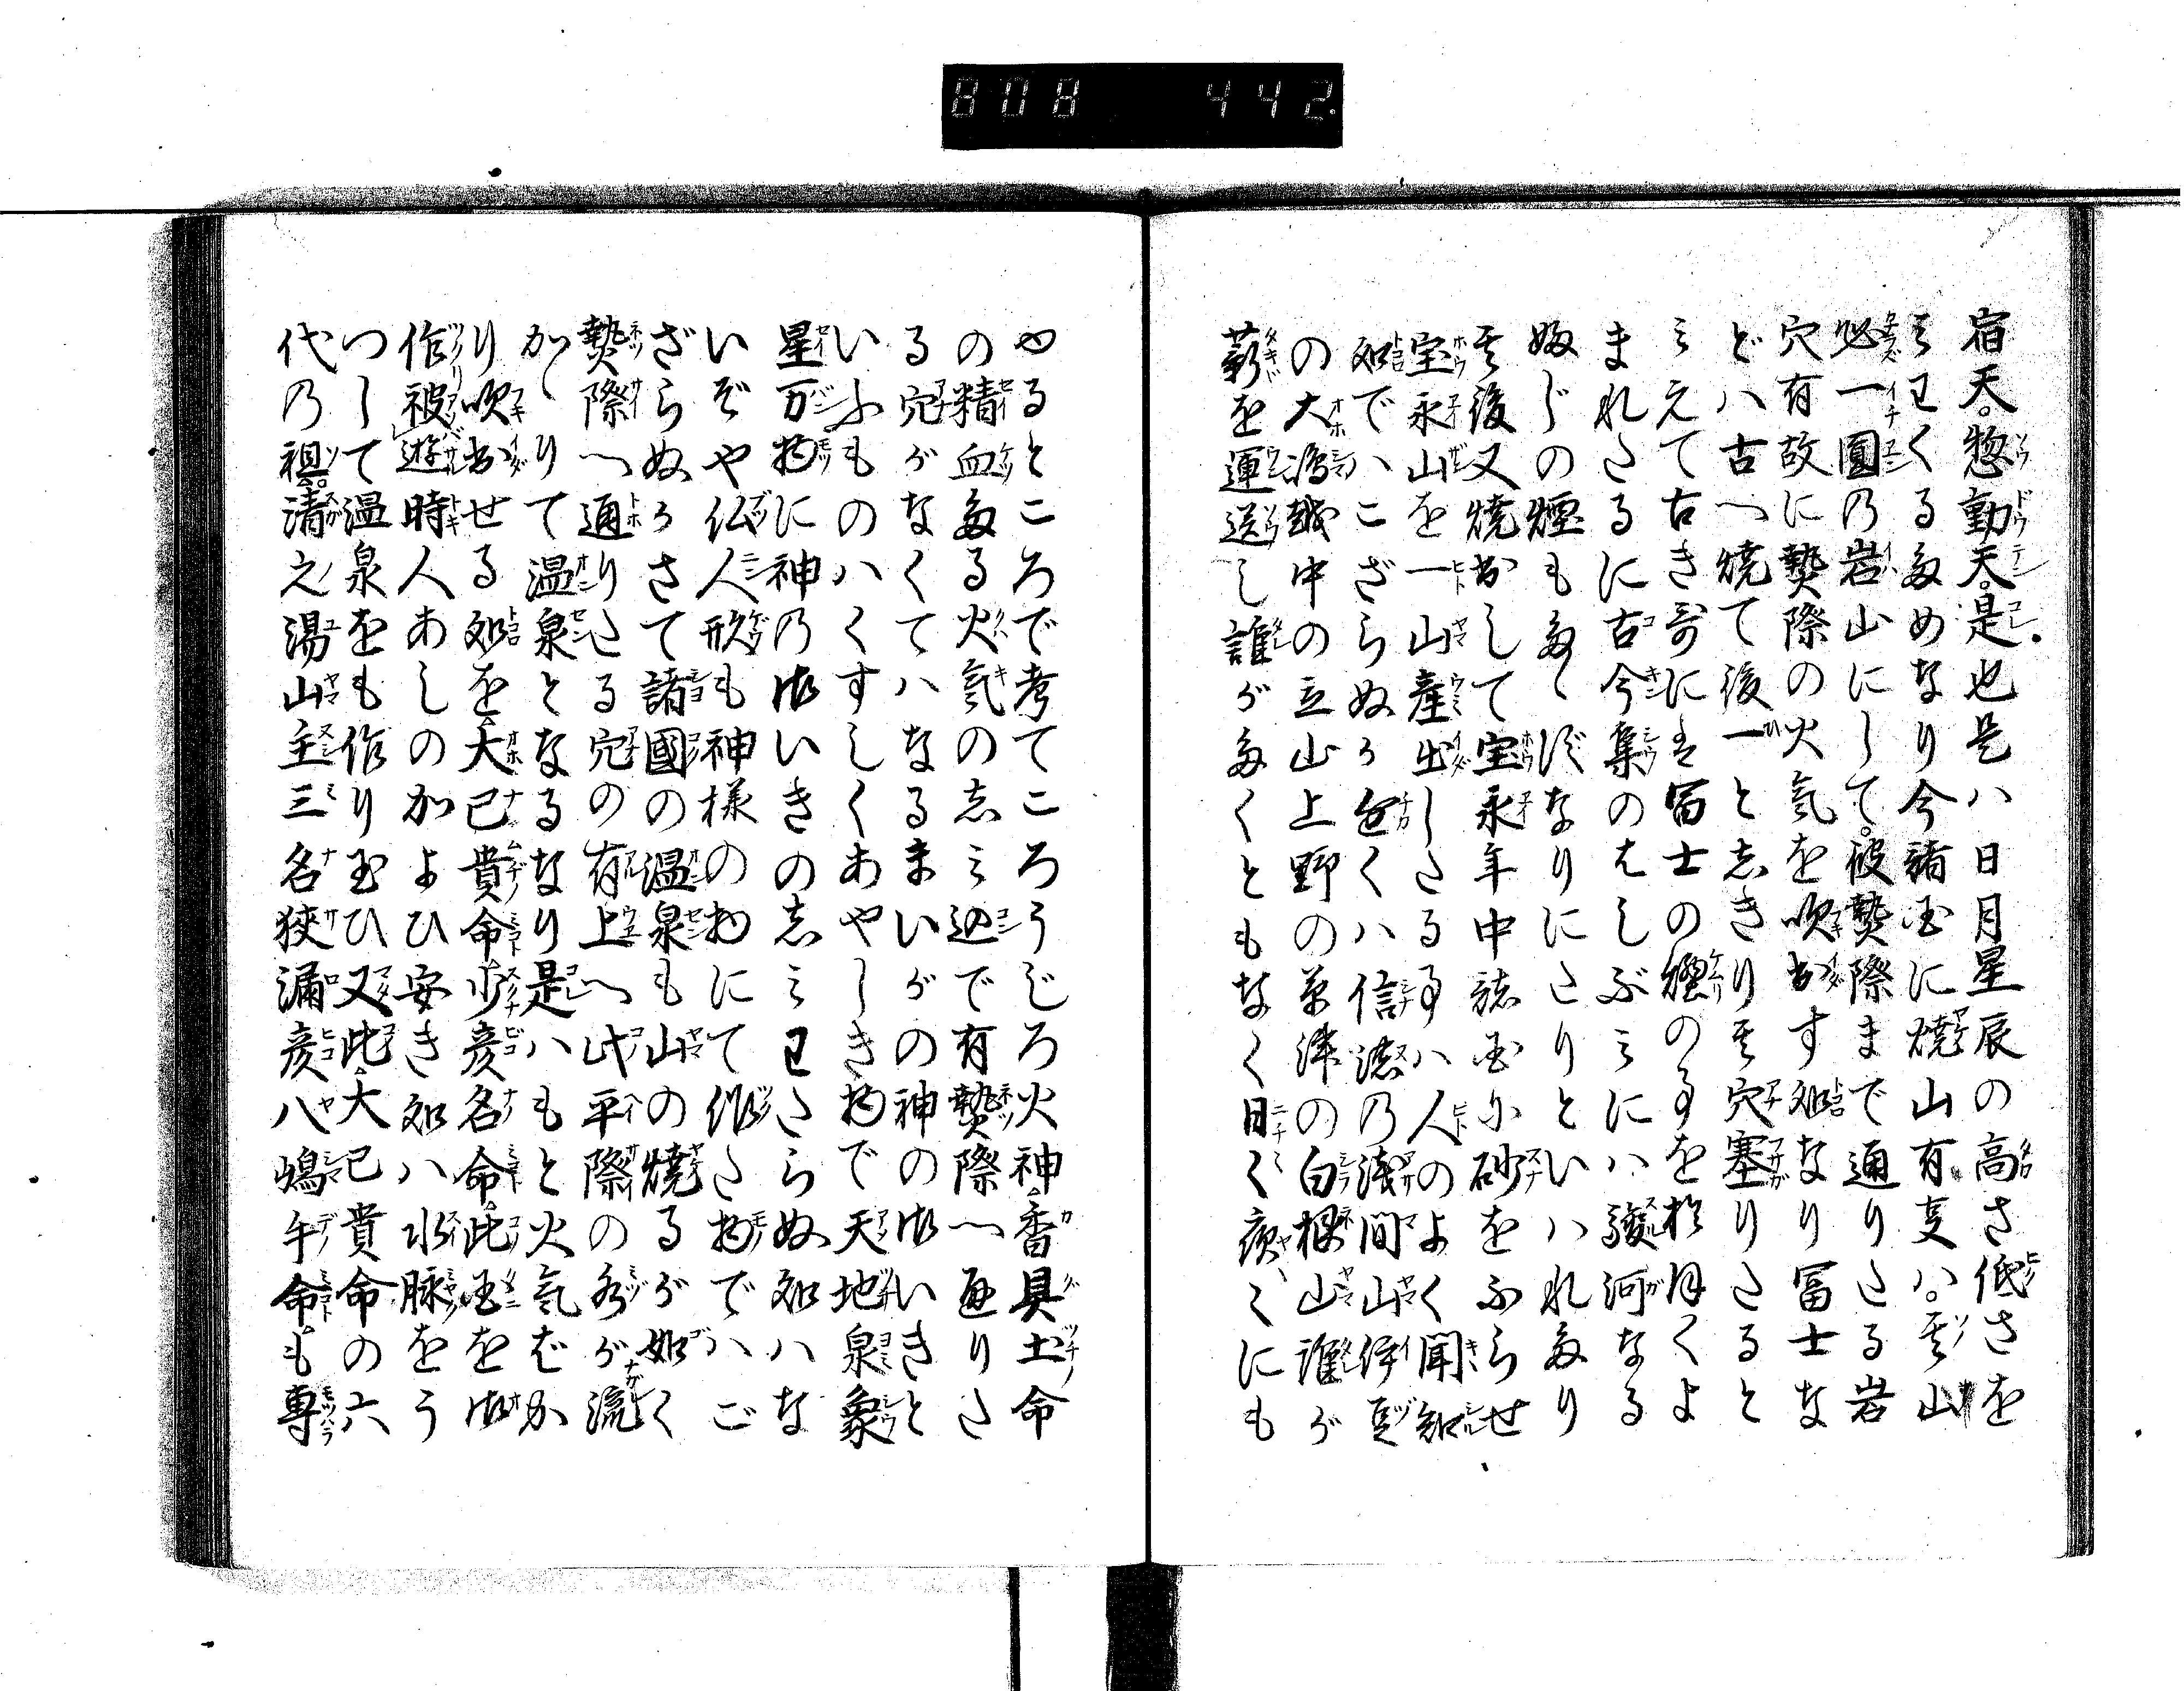 808 442.
宿天。惣動天。是也是ハ日月星辰の高さ低さを
そわくるためなり今諸国に焼山有事ハ。其山
必一圓の岩山にして。彼𤍠際まで通りたる岩
穴有故に𤍠際の火気を吹出す処なり冨士な
どハ古へ焼て後一としきり其穴塞りたると
みえて古き哥に
冨士の煙の
よ
まれたるに古今集のはしぶみにハ駿河なる
ふじの煙もたゝずなりにたりといハれたり
其後又焼出して宝永年中諸国に砂をふらせ
宝永山を一山産出したる事ハ人のよく聞知
処でハこざらぬか近くハ信濃の浅間山伊豆
の大嶋越中の立山上野の草津の白根山誰が
薪を運送し誰がたくともなく日々夜々にも
やるところで考てころうじろ火神香具土命
の精血たる火気のしみ込で有𤍠際へ通りた
る穴がなくてハなるまいがの神の御いきと
いふものハくすしくあやしき物で天地泉象
星万物に神の御いきのしみわたらぬ処ハな
いぞや仏人形も神様の物にて作た物でハご
ざらぬかさて諸國の温泉も山の焼るが如く
𤍠際へ通りたる穴の有上へ此平際の水が流
かゝりて温泉となるなり是ハもと火気ばか
り吹出せる処を大己貴命少彦名命此国を御
作被遊時人あしのかよひ安き処ハ水脉をう
つして温泉をも作り玉ひ又此大己貴命の六
代の祖。清之湯山主三名狹漏彦八嶋牟命も専